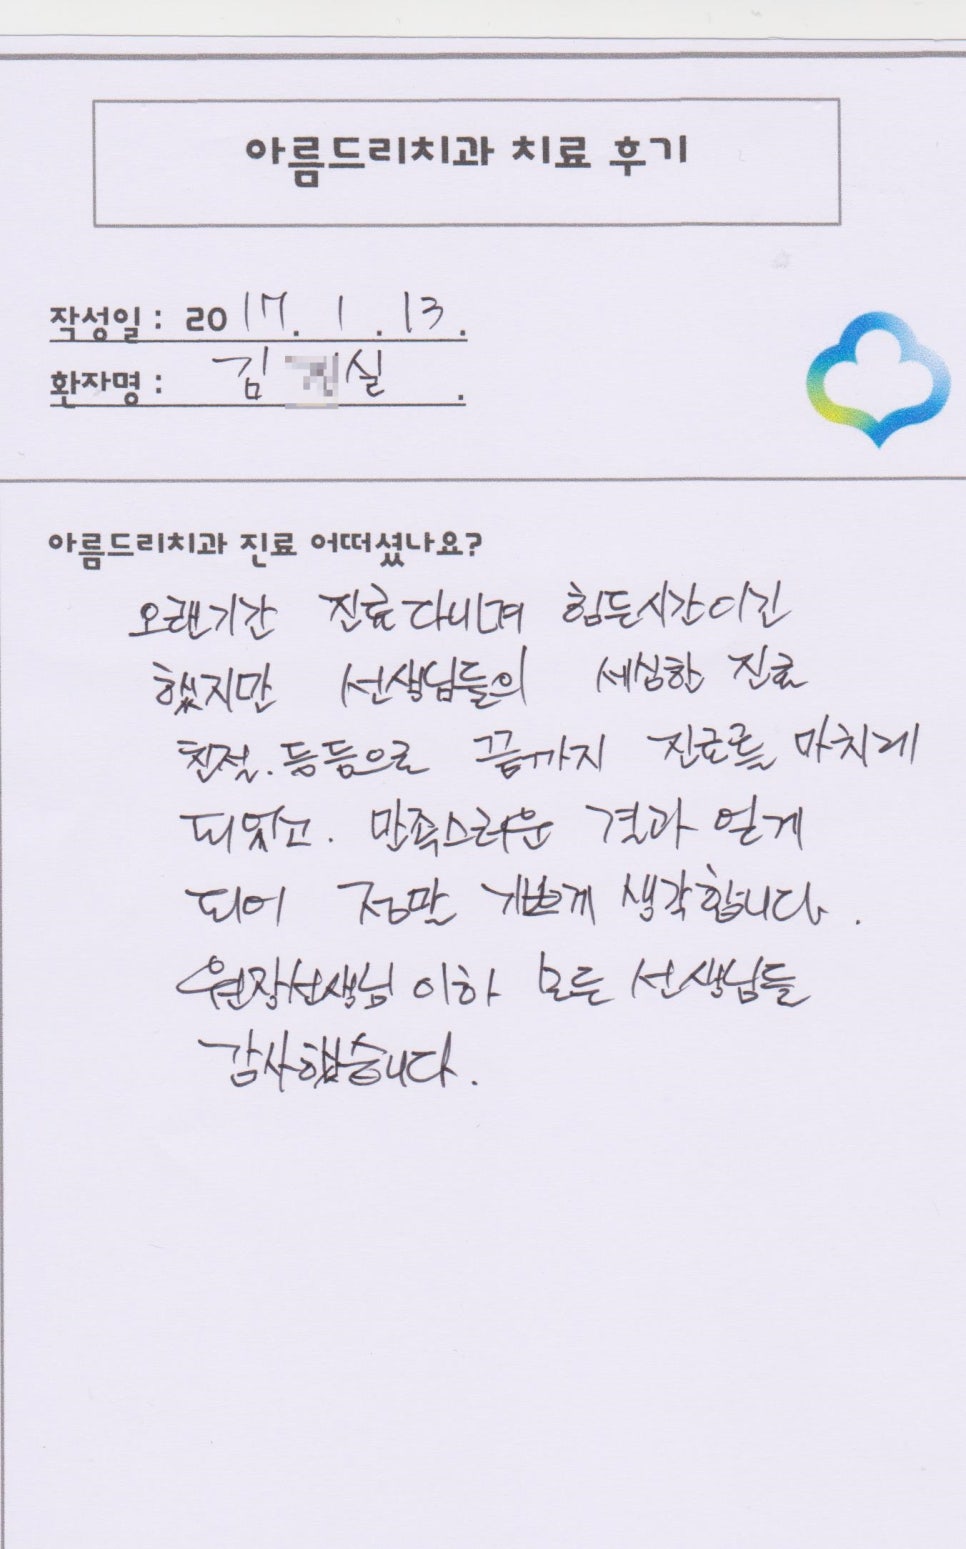 아름드리치과 치료 후기
작성일 : 2017. 1 . 13 .
환자명 : 김 실 .
아름드리치과 진료 어떠셨나요?
오랜기간 진료다니며 힘든시간이긴
했지만 선생님들의 세심한 진료
친절.등등으로 끝까지 진료를 마치게
되었고. 만족스러운 결과 얻게
되어 정말 기쁘게 생각합니다.
원장선생님 이하 모든 선생님들
감사했습니다.